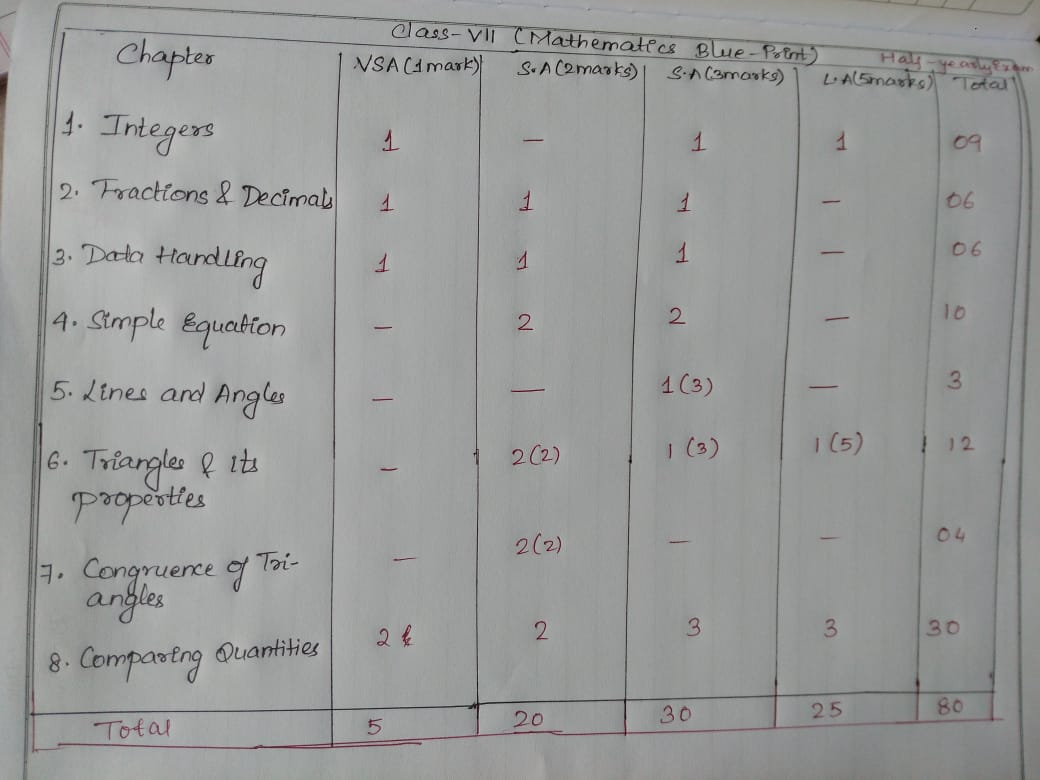 Class-VII (Mathematics Blue-Print) Half-yearly Exam
Chapter VSA (1mark) S.A (2marks) S.A (3marks) L.A (5marks) Total
1. Integers 1 — 1 1 09
2. Fractions & Decimals 1 1 1 — 06
3. Data Handling 1 1 1 — 06
4. Simple Equation — 2 2 — 10
5. Lines and Angles — — 1(3) — 3
6. Triangles & its — 2(2) 1 (3) 1 (5) 12
properties
7. Congruence of Tri- — 2(2) — — 04
angles
8. Comparing Quantities 2 2 3 3 30
Total 5 20 30 25 80